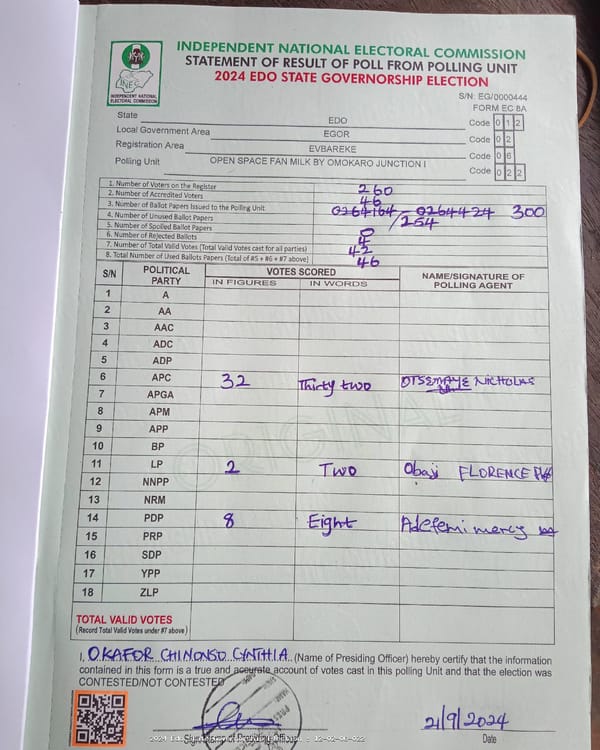 INDEPENDENT NATIONAL ELECTORAL COMMISSION
STATEMENT OF RESULT OF POLL FROM POLLING UNIT
2024 EDO STATE GOVERNORSHIP ELECTION
INEC
INDEPENDENT NATIONAL ELECTORAL COMMISSION
S/N: EG/0000444
FORM EC 8A
State EDO Code 0 1 2
Local Government Area EGOR Code 0 2
Registration Area EVBAREKE Code 0 6
Polling Unit OPEN SPACE FAN MILK BY OMOKARO JUNCTION I Code 0 2 2
1. Number of Voters on the Register 260
2. Number of Accredited Voters 46
3. Number of Ballot Papers Issued to the Polling Unit 0264164 - 0264424 300
4. Number of Unused Ballot Papers 254
5. Number of Spoiled Ballot Papers 0
6. Number of Rejected Ballots 4
7. Number of Total Valid Votes (Total Valid Votes cast for all parties) 42
8. Total Number of Used Ballots Papers (Total of #5 + #6 + #7 above) 46
S/N POLITICAL PARTY VOTES SCORED NAME/SIGNATURE OF POLLING AGENT
IN FIGURES IN WORDS
1 A
2 AA
3 AAC
4 ADC
5 ADP
6 APC 32 Thirty two OTSEMAYE NICHOLAS
7 APGA
8 APM
9 APP
10 BP
11 LP 2 Two Obaji FLORENCE
12 NNPP
13 NRM
14 PDP 8 Eight Adefemi mercy
15 PRP
16 SDP
17 YPP
18 ZLP
ORIGINAL
TOTAL VALID VOTES
(Record Total Valid Votes under #7 above)
I, OKAFOR CHINONSO CYNTHIA (Name of Presiding Officer) hereby certify that the information
contained in this form is a true and accurate account of votes cast in this polling Unit and that the election was
CONTESTED/NOT CONTESTED
21/9/2024
Signature of Presiding Officer Date